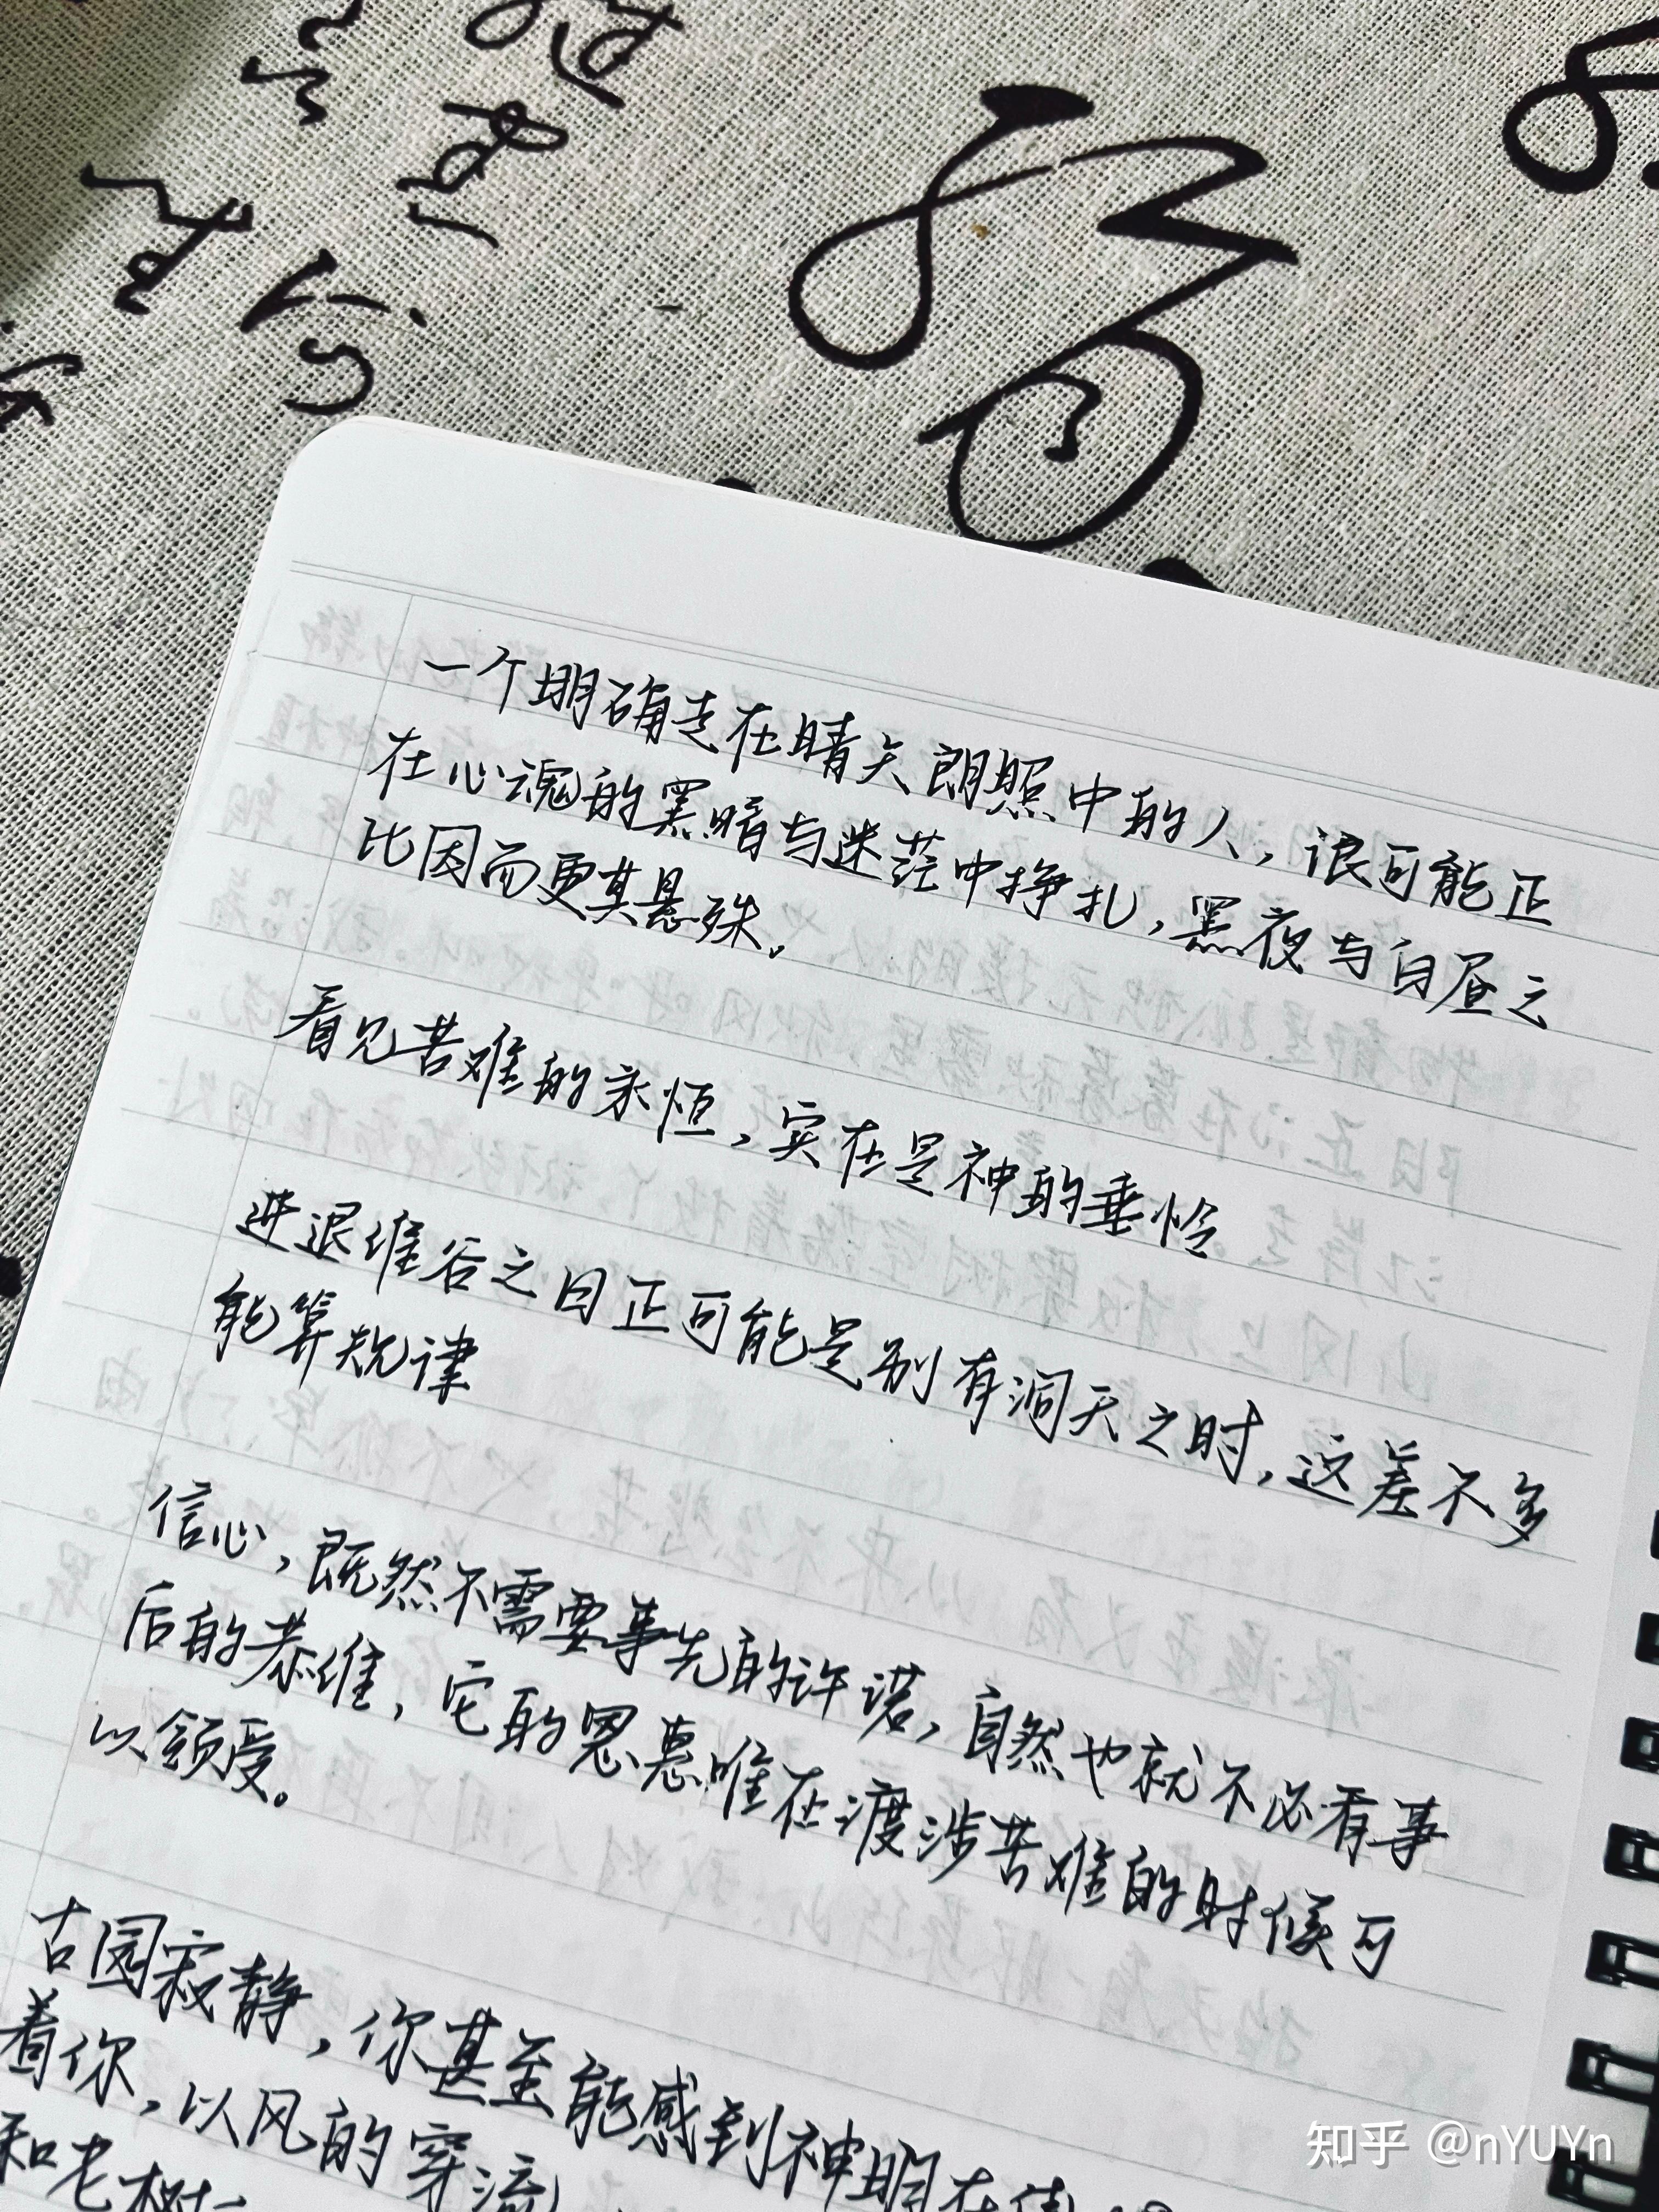 一个明确走在晴天朗照中的人，很可能正
在心魂的黑暗与迷茫中挣扎，黑夜与白昼之
比因而更其悬殊。
看见苦难的永恒，实在是神的垂怜
进退维谷之日正可能是别有洞天之时，这差不多
能算规律
信心，既然不需要事先的许诺，自然也就不必有事
后的恭维，它的恩惠唯在渡涉苦难的时候可
以领受。
古园寂静，你甚至能感到神明在
着你，以风的穿流
和老树
知乎 @nYUYn